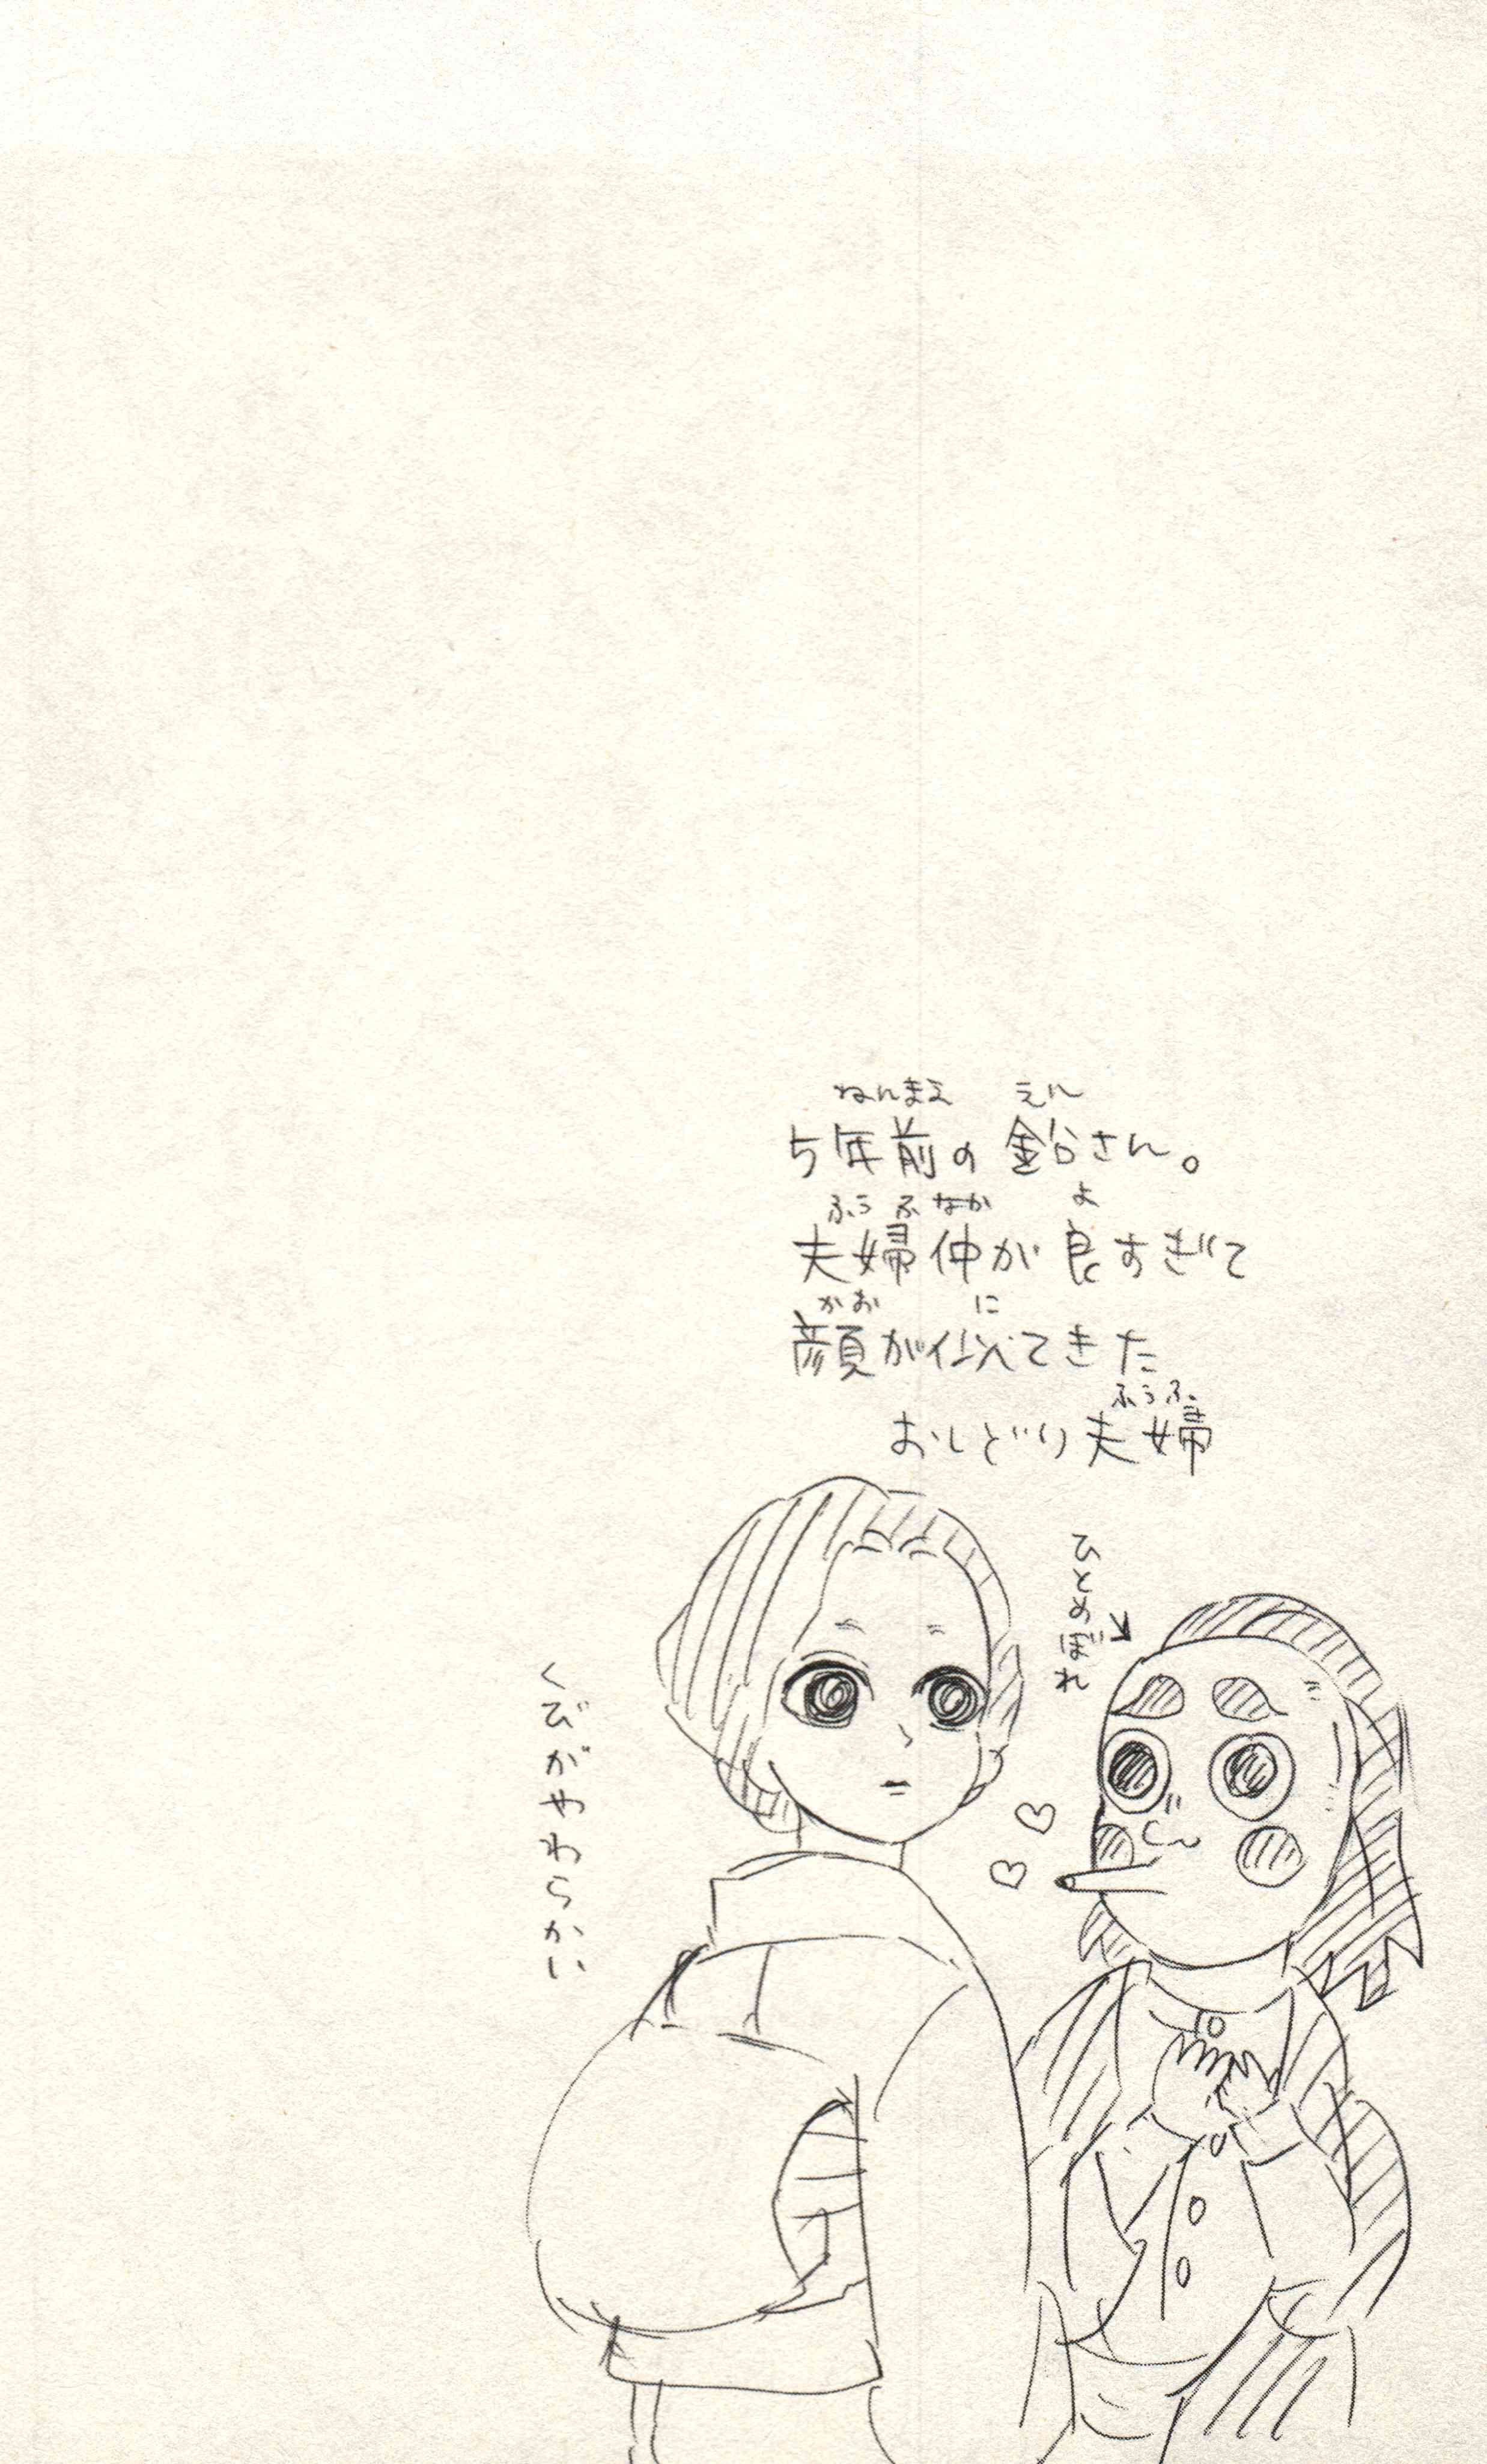 ねんまえ えん
5年前の鉛さん。
ふうふなか よ
夫婦仲が良すぎて
かお に
顔が似てきた
ふうふ
おしどり夫婦
ひとめ惚れ
くびがやわらかい